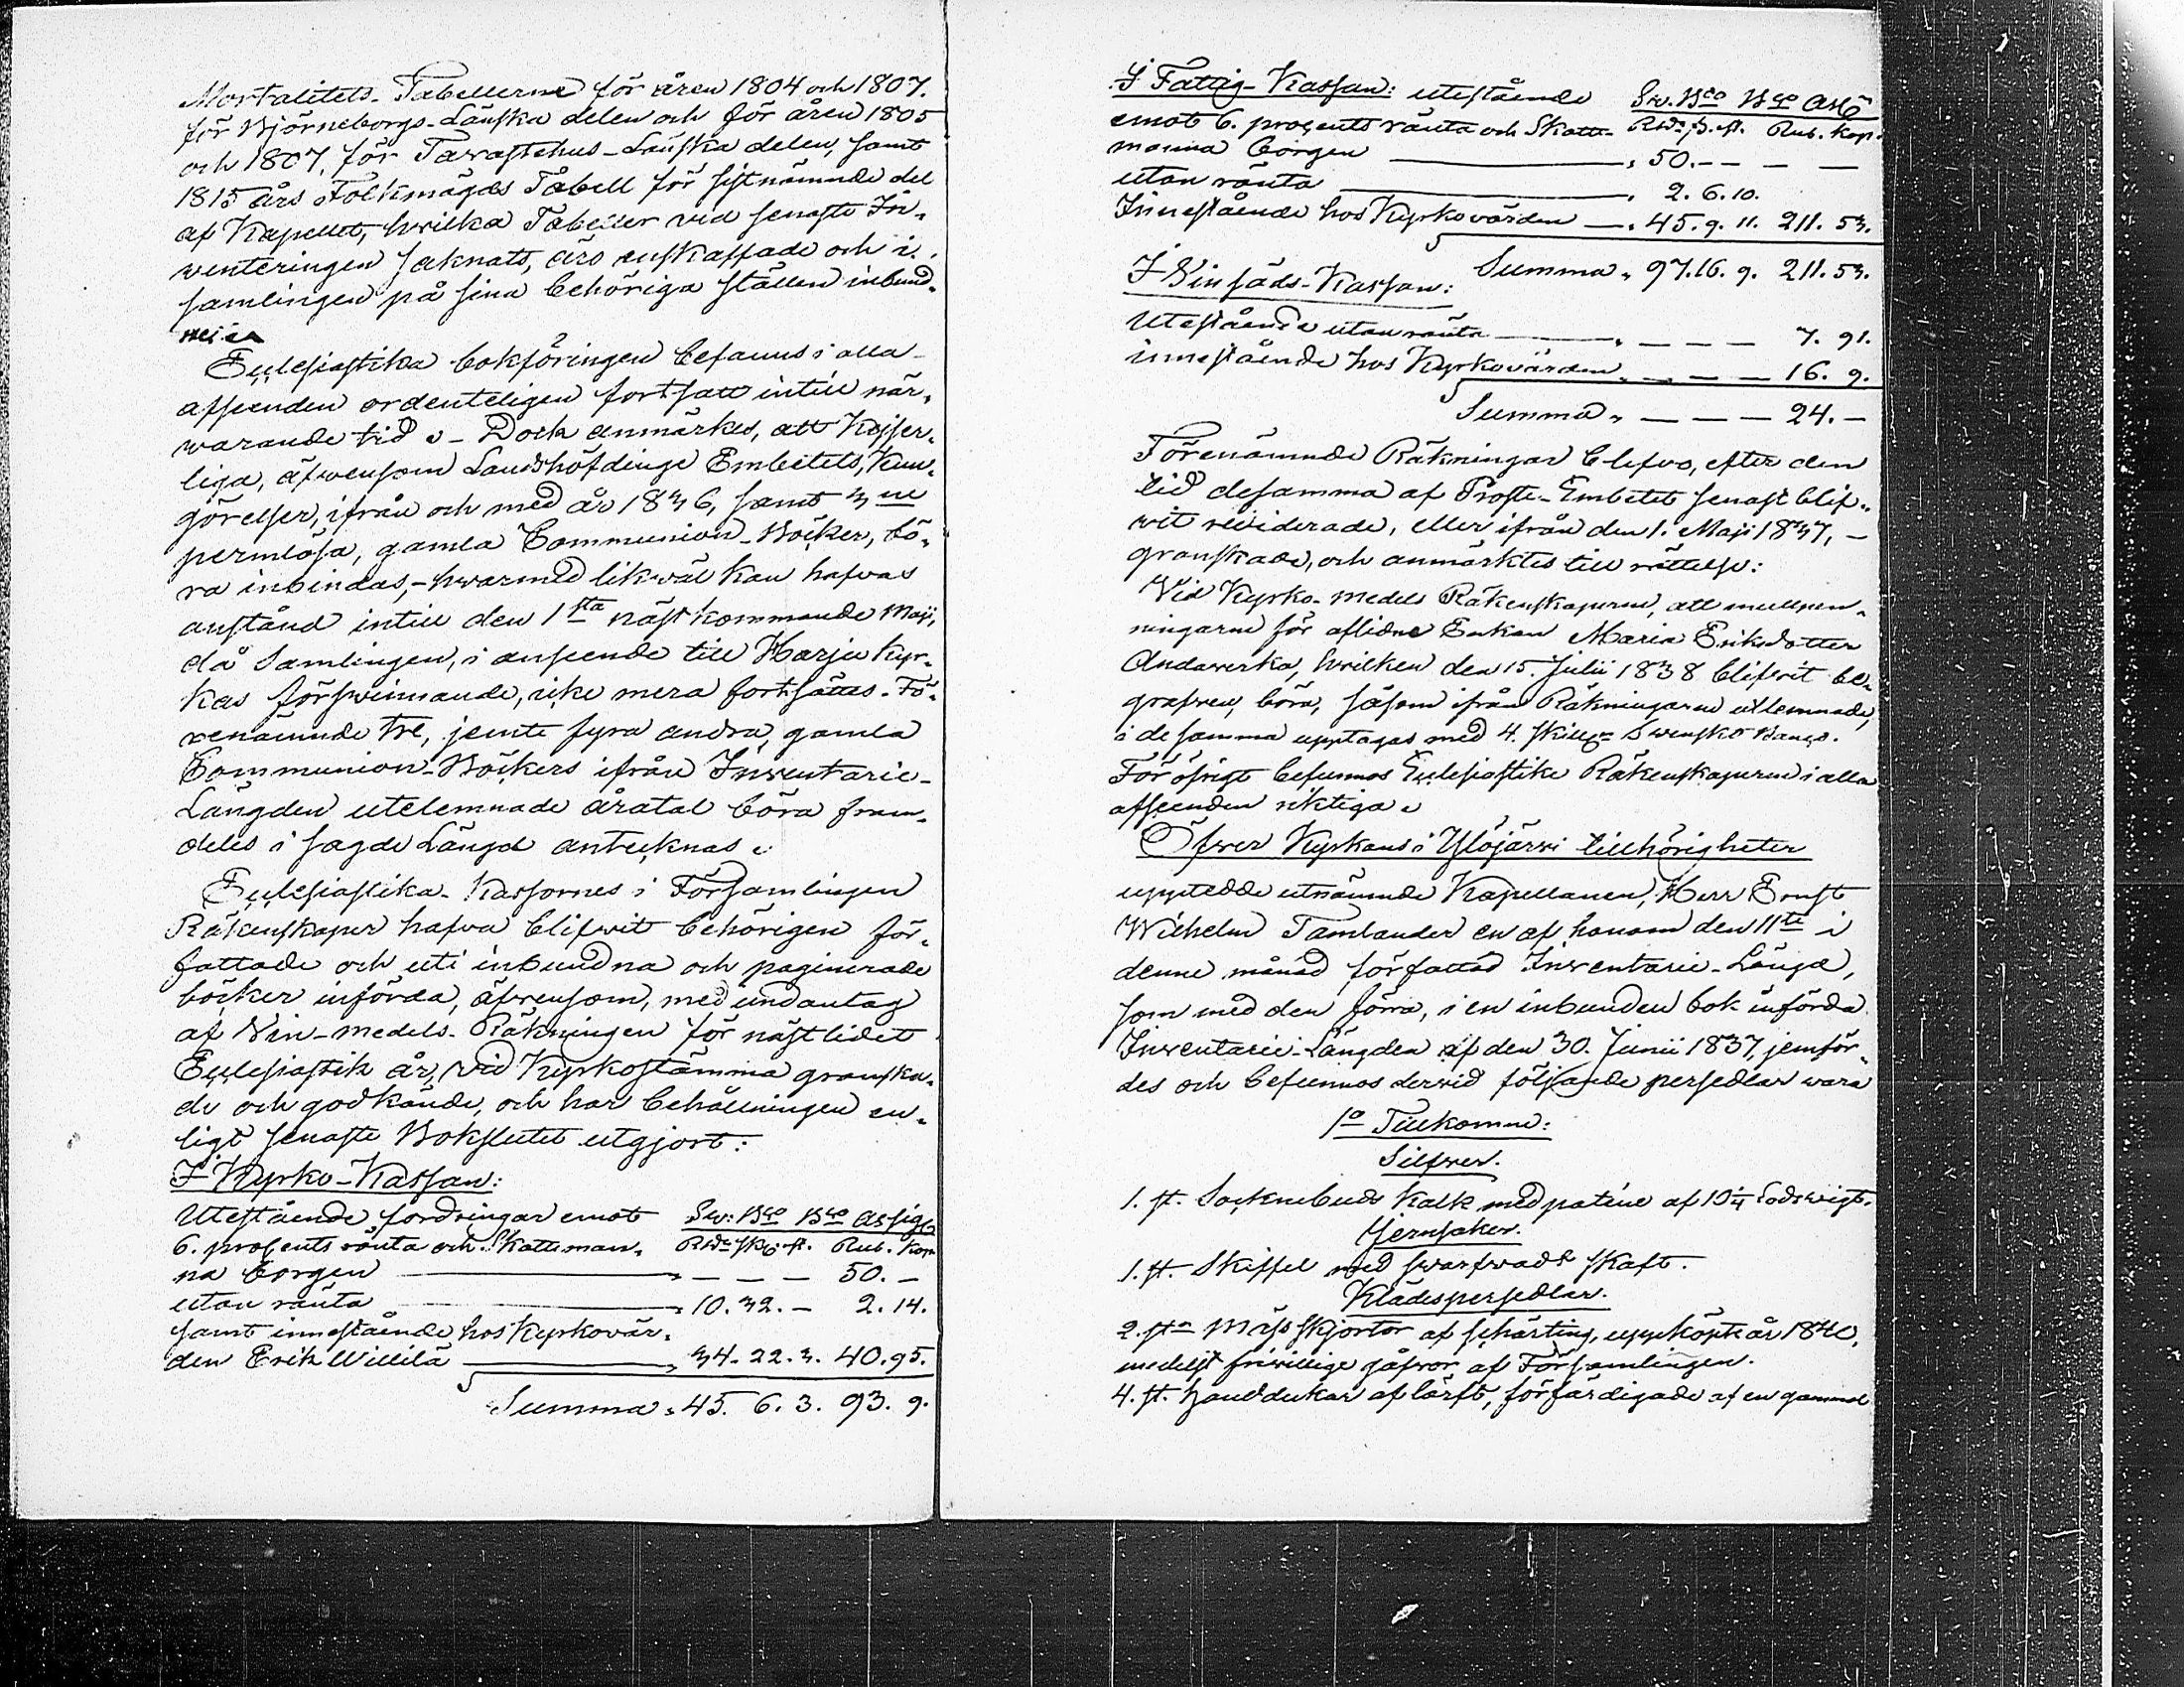 Mortalitets-Tabellerne för åren 1804 och 1807.
för Björneborgs-Länska delen och för åren 1805
och 1807, för Tavastehus-Länska delen, samt
1815 års Folkmägds Tabell för sistnämnde del
af Kapellet, hwilka Tabeller vid senaste In-
venteringen saknats, äro anskaffade och i
samlingen på sina behöriga ställen inbund-
Ecclesiastika bokföringen befanns i alla
afseenden ordenteligen fortsatt intill när-
warande tid. - Dock anmärkes, att Kejser-
liga, äfwensom Landshöfdinge Embetets, Kun-
görelser, ifrån och med år 1836, samt 3ne
permlösa, gamla Communion-Böcker, bö-
ra inbindas, - hwarmed likwäl kan hafvas
anstånd intill den 1sta nästkommande Maji,
då Samlingen, i anseende till Harju Kyr-
kas förswinnande, icke mera fortsättes. Fö-
renämnde tre, jemte fyra andra, gamla
Communion-Böckers ifrån Inventarie-
Längden utelemnade åratal böra fram-
deles i sagde Längd antecknas.
Ecclesiastika-Kassornes i Församlingen
Räkenskaper hafva blifwit behörigen för-
fattade och uti inbundna och paginerade
böcker införda, äfwensom, med undantag
af Vin-medels-Räkningen för nästlidet
Ecclesiastik år, vid Kyrkostämma granska-
de och godkände, och har behållningen en-
ligt senaste Bokslutet utgjort:
I Kyrko-Kassan:
Utestående fordringar emot Sw: Bco Bco Assig
6. procents ränta och Skatteman- Rdr sk. rst. Rub. Kop
na borgen — — — 50. —
utan ränta 10. 32. — 2. 14.
samt innestående hos Kyrkovär-
den Erik Willilä 34. 22. 3. 40. 95.
Summa 45. 6. 3. 93. 9.
I Fattig-Kassan: utestående Sw. Bco Bco Ass
emot 6. procents ränta och Skatte- Rdr s. rst. Rub. Kop.
manna borgen 50. — — — —
utan ränta 2. 6. 10.
Innestående hos Kyrkovärden 45. 9. 11. 211. 53.
Summa 97. 16. 9. 211. 53.
I Vinsäds-Kassan:
Utestående utan ränta — — — 7. 91.
innestående hos Kyrkovärden — — — 16. 9.
Summa — — — 24. —
Förenämnde Räkningar blefvo, efter den
tid desamma af Prosts-Embetet senast blif-
wit reviderade, eller ifrån den 1. Maji 1837, —
granskade, och anmärktes till rättelse:
Vid Kyrko-medels Räkenskaperne, att mullpen-
ningarne för aflidne Enkan Maria Eriksdotter
Andawerka, hwilken den 15. Julii 1838 blifvit be-
grafven, böra, såsom ifrån Räkningarne utlemnade,
i desamma upptagas med 4. skillr Swensko Banco.
För öfrigt befunnos Ecclesiastike Räkenskaperne i alla
afseenden riktiga.
Öfver Kyrkans i Ylöjärvi tillhörigheter
upptedde utnämnde Kapellanen, Herr Ernst
Wilhelm Tamlander en af honom den 11te i
denne månad författad Inventarie-Längd,
som med den förra, i en inbunden bok införda
Inventarii-Längden af den 30. Junii 1837, jemför-
des och befunnos dervid följande persedlar vara
1o Tillkomne:
Silfver.
1. st. Sockenbuds kalk med patène af 10 1/4 Lods wigt.
Jernsaker.
1. st. Skiffel med swarfwadt skaft.
Klädespersedlar.
2. sta Mässskjortor af schärting, uppköpte år 1840,
medelst friwillige gåfvor af Församlingen.
4. st. Handdukar af lärft, förfärdigade af en gammal